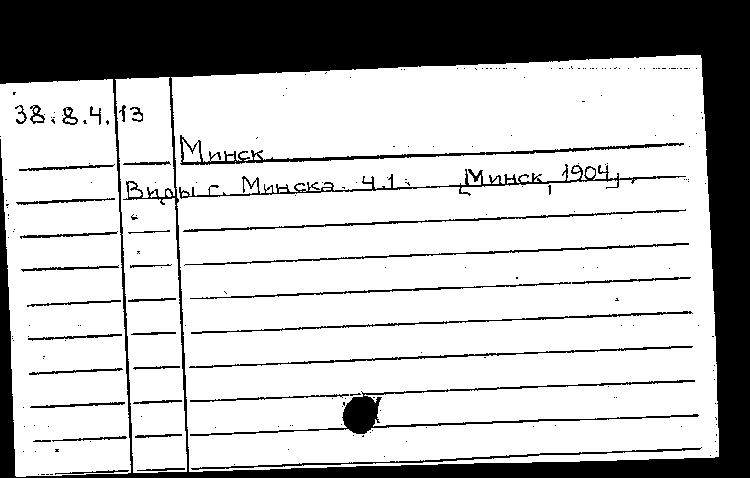 38.8.4.13
Минск.
Виды г. Минска. Ч.1. [Минск, 1904].